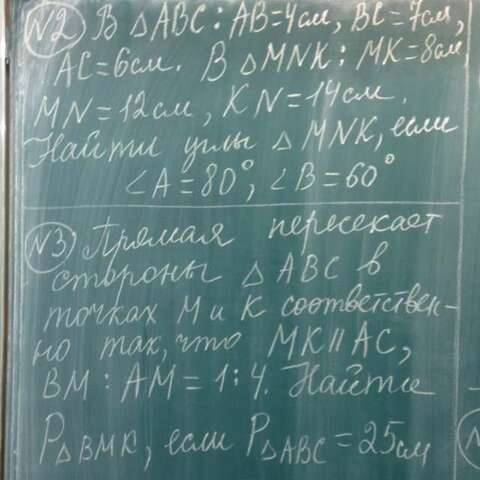 №2 В △ABC: AB=4см, BC=7см,
AC=6см. В △MNK: MK=8см,
MN=12см, KN=14см.
Найти углы △MNK, если
∠A=80°, ∠B=60°
№3 Прямая пересекает
стороны △ABC в
точках M и K соответствен-
но так, что MK||AC,
BM:AM=1:4. Найти
P△BMK, если P△ABC=25см